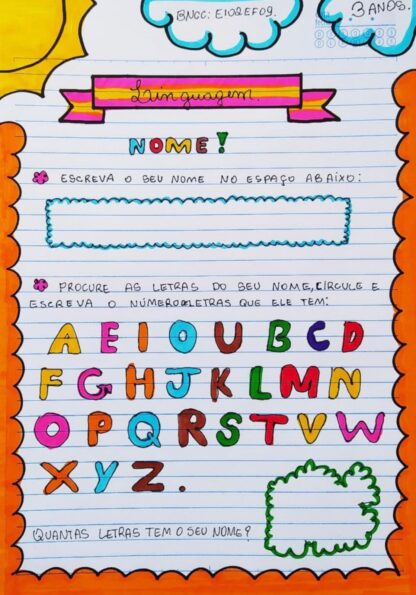 BNCC: EI02EF09.
3 ANOS.
Linguagem.
NOME!
ESCREVA O SEU NOME NO ESPAÇO ABAIXO:
PROCURE AS LETRAS DO SEU NOME, CÍRCULE E
ESCREVA O NÚMERO DE LETRAS QUE ELE TEM:
A E I O U B C D
F G H J K L M N
O P Q R S T V W
X Y Z.
QUANTAS LETRAS TEM O SEU NOME?